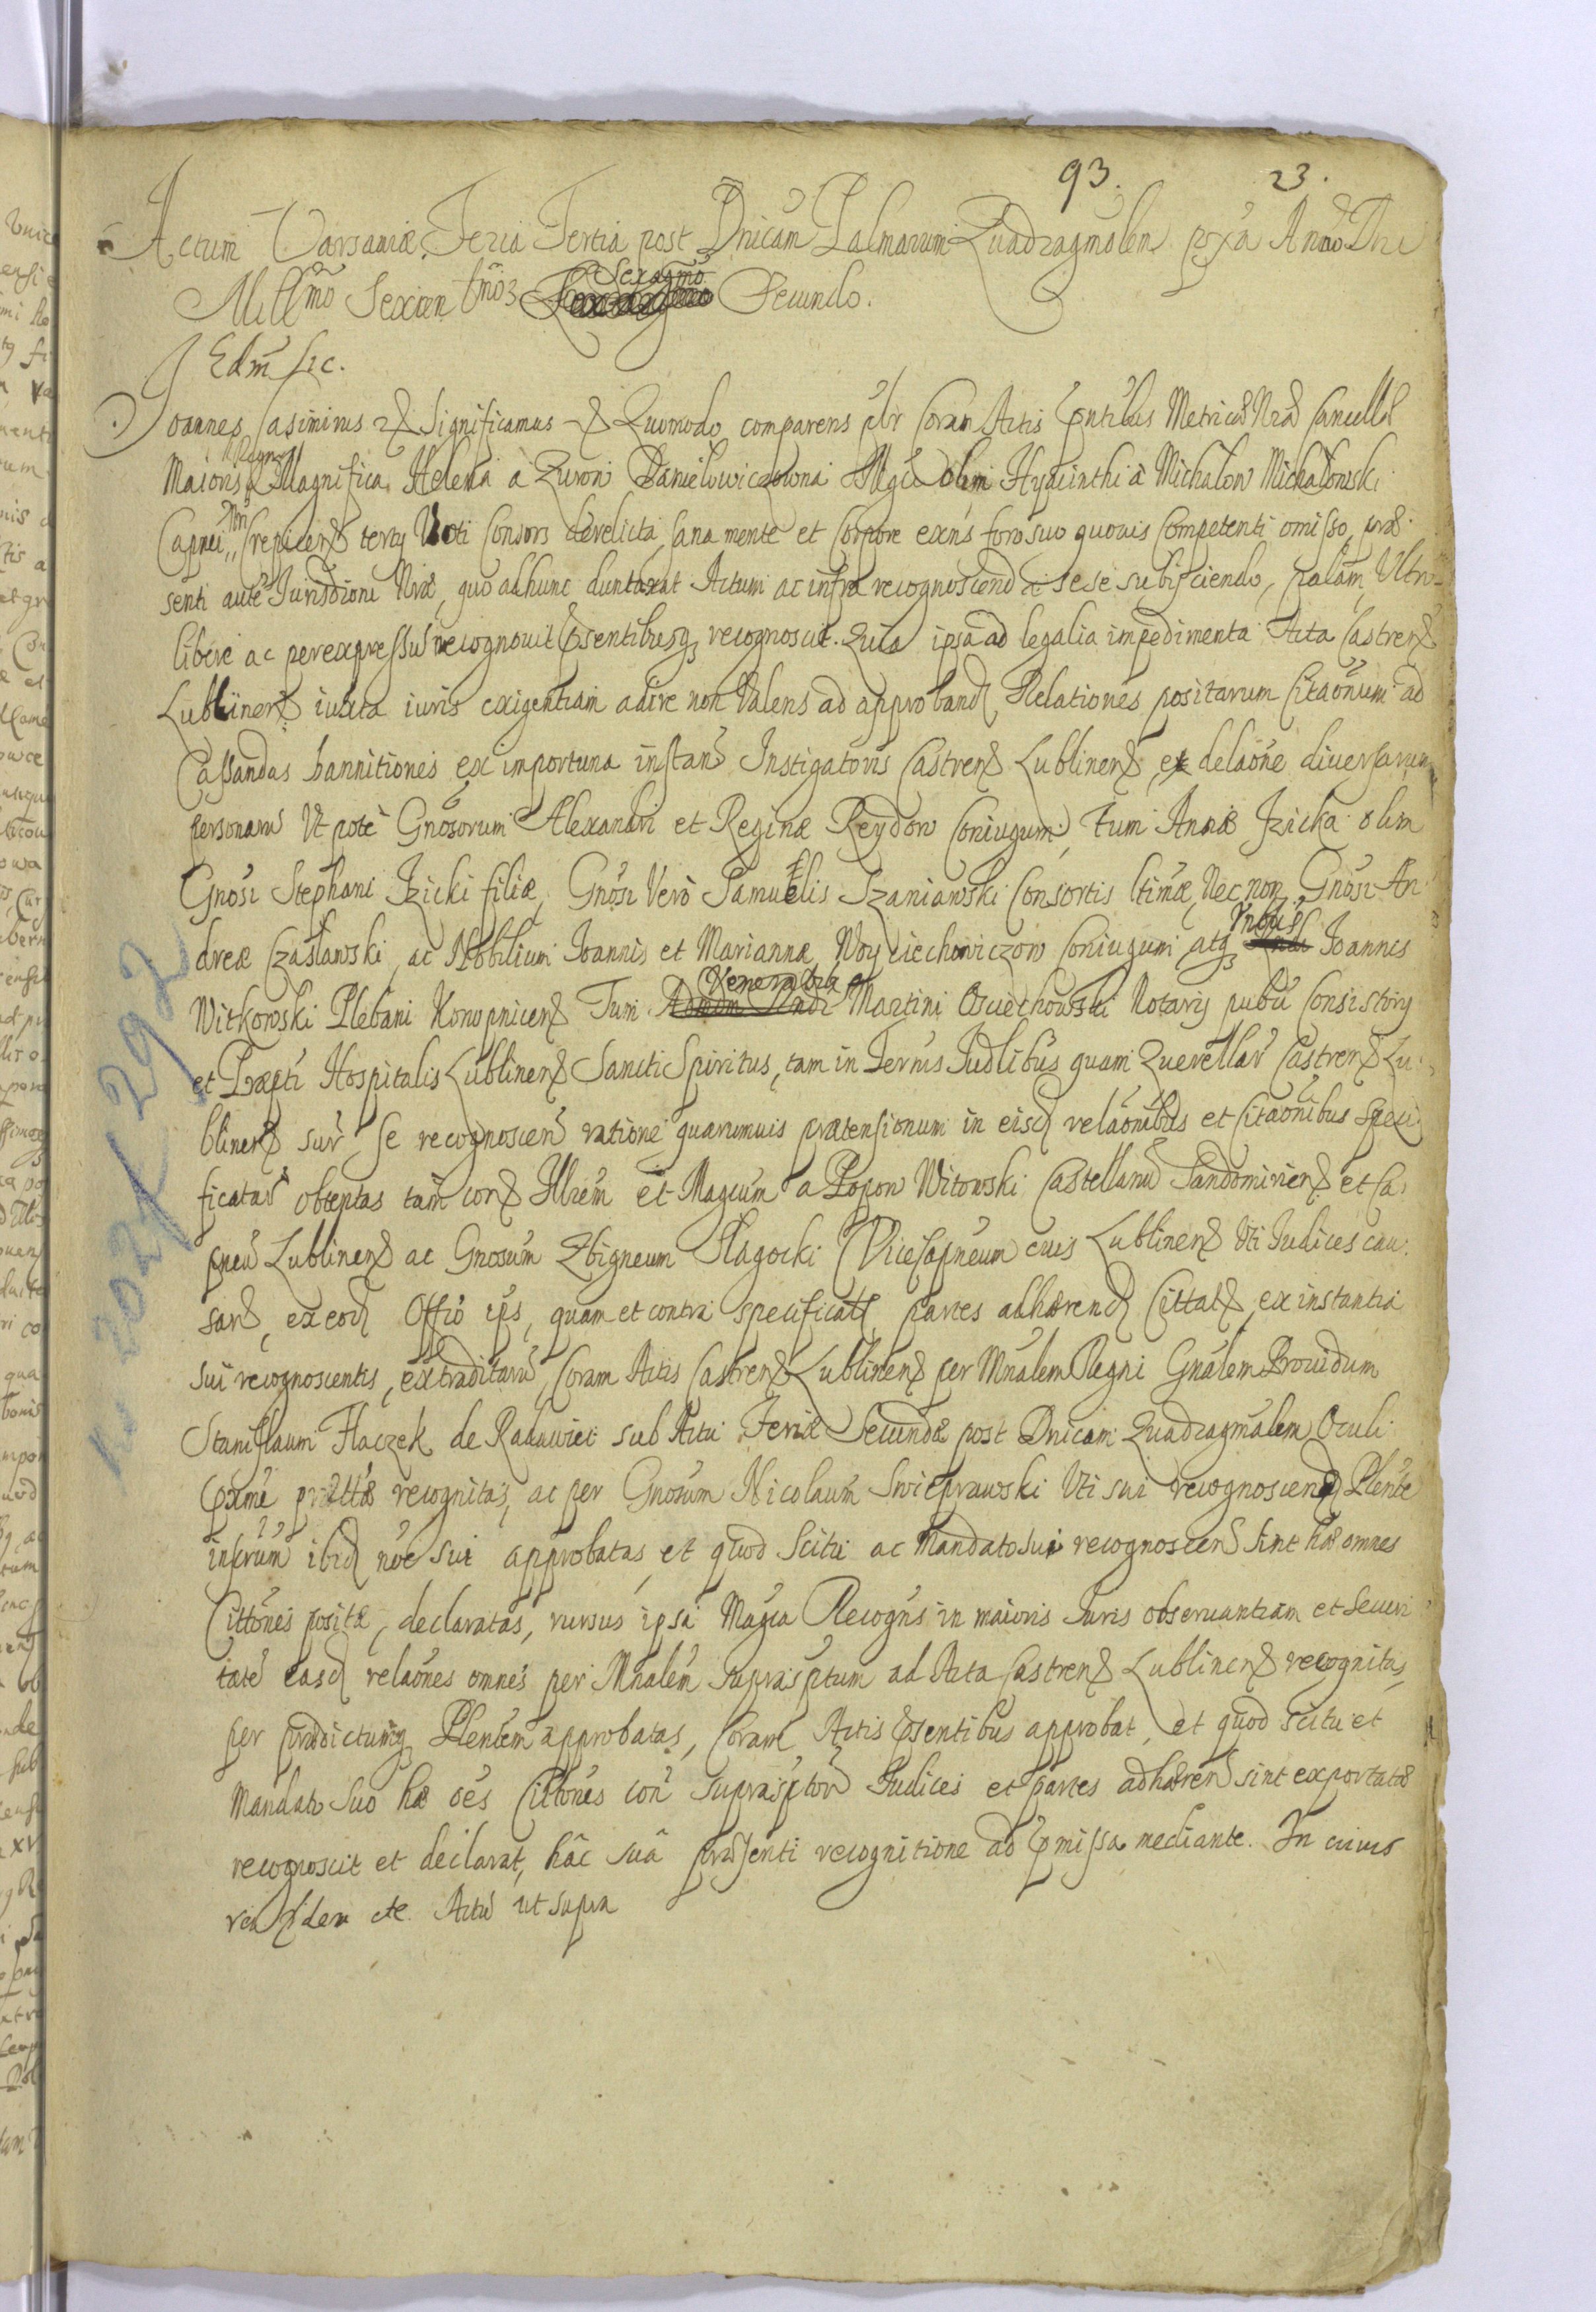 93. 23.
Actum Varsaviæ Feria Tertia post Dnicam Palmarum Quadragmalem pxa Anno Dni
Millmo Sexcentmo Sexagmo Secundo.
Edm sic.
Joannes Casimirus Significamus Quomodo comparens plr Coram Actis pntibus Metricæ Nræ Cancellæ
Maioris Regni Magnifica Helena a Zurow Danielowiczowna Mgci olim Hyacinthi à Michalow Michalowski
Capnei Crepicen tertij Voti Consors derelicta, sana mente et Corpore exns foro suo quovis Competenti omisso, præ
senti autē Jurisdioni Nræ, quo ad hunc duntaxat Actum ac infra recognoscend sese subijciendo, palam
libere ac per expressum recognovit psentibusq recognoscit. Quia ipsa ad legalia impedimenta Acta Castren
Lublinen iuxta iuris exigentiam adire non Valens ad approband Relationes positarum Citaonum ad
Cassandas bannitiones ex importuna instan Instigatoris Castren Lublinen, et delaone diversarum
personarū Ut pote Gnosorum Alexandri et Reginæ Reydow Coniugum, tum Annæ Izicka olim
Gnosi Stephani Izicki filiæ, Gnosi Vero Samuelis Szaniawski Consortis ltimæ, Nec non Gnosi An
dreæ Czaslawski, ac Nobilium Ioannis et Mariannæ Woyciechowiczow Coniugum atq Ioannes
Witkowski Plebani Konopnicen Tum Venerabilis Martini Osuchowski Notarij publi Consistorij
et Præpti Hospitalis Lublinen Sancti Spiritus, tam in Ternis Judlibus quam Querellar Castren Lu
blinen sur se recognoscen ratione quarumvis prætensionum in eisd relaonibus et Citaonibus speci
ficatar obtentas tam con Illrem et Magcum a Popow Witowski Castellanū Sandomirien et Ca
pneū Lublinen ac Gnosum Zbigneum Plagocki ViceCapneum cius Lublinen Uti Judices cau
sar, ex eod Offio ips, quam et contra specificatt partes adhærend Cittat, ex instantia
sui recognoscentis, extraditarū, Coram Actis Castren Lublinen per Mnalem Regni Gnalem Providum
Stanislaum Flaczek de Raduwiec sub Actu Feriæ Secundæ post Dnicam Quadragmalem Oculi
pxime recognitas, ac per Gnosum Nicolaum Swieprawski Uti sui recognoscen Plente
infrum ibid nōe sui approbatas, et quod Scitu ac Mandato sui recognoscen sint hæ omnes
Cittones positæ, declaratas, rursus ipsa Magca Recogns in maioris Juris observantiam et Securi
tatē easd relaones omnes per Mnalem suprascptum ad Acta Castren Lublinen recognitas,
per prædictumq Plentem approbatas, Coram Actis psentibus approbat, et quod scitu et
Mandato Suo hæ oēs Cittones con suprascptor Judices et partes adhæren sint exportatæ
recognoscit et declarat, hâc suâ præsenti recognitione ad pmissa mediante. In cuius
rei fidem etc. Actū ut supra